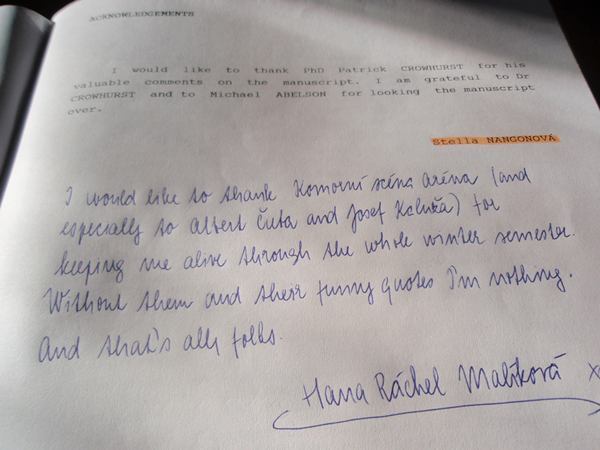 ACKNOWLEDGEMENTS
I would like to thank PhD Patrick CROWHURST for his
valuable comments on the manuscript. I am grateful to Dr
CROWHURST and to Michael ABELSON for looking the manuscript
over.
Stella NANGONOVÁ
I would like to thank Komorní scéna Aréna (and
especially to Albert Čuba and Josef Kaluža) for
keeping me alive through the whole winter semester.
Without them and their funny quotes I'm nothing.
And that's all, folks.
Hana Ráchel Malíková x